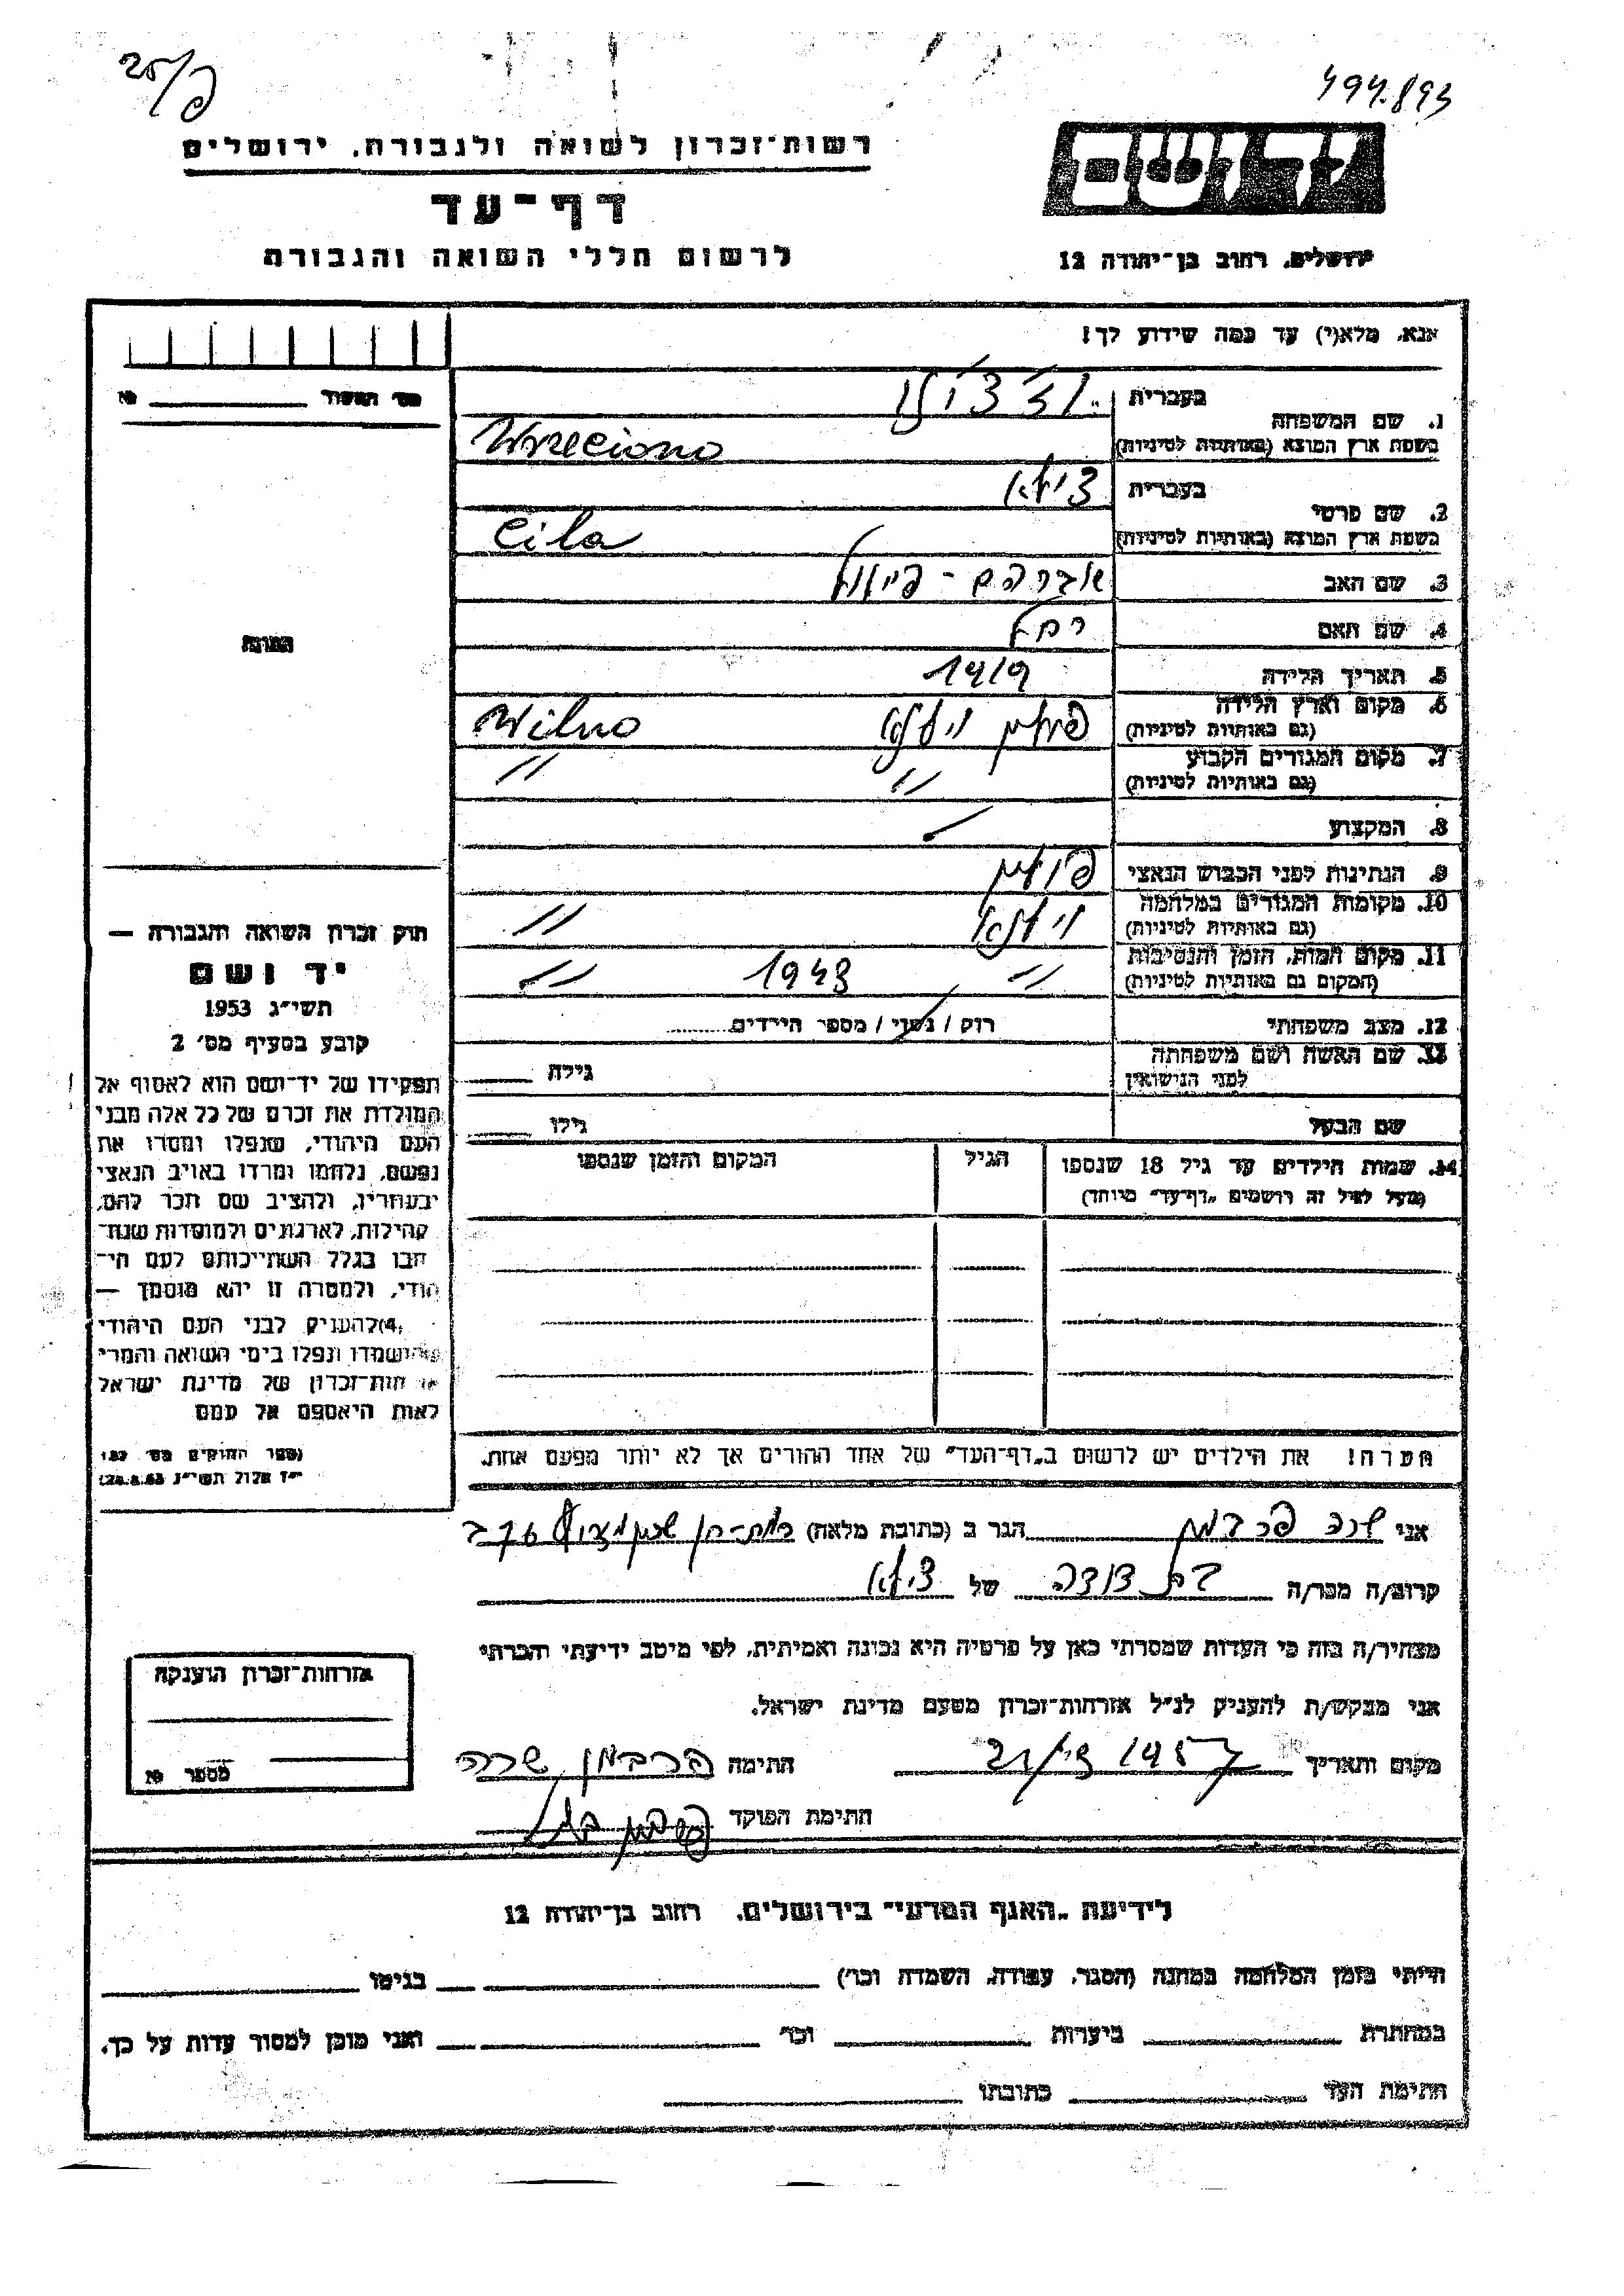 494.893
רשות-זכרון לשואה ולגבורה, ירושלים
דף-עד
לרשום חללי השואה והגבורה
יד ושם
ירושלים, רחוב בן-יהודה 12
אנא, מלא(י) עד כמה שידוע לך!
מס' תיק
1. שם המשפחה
בעברית
בשפת ארץ המוצא (באותיות לטיניות) Wrzeciono
2. שם פרטי
בעברית צילא
בשפת ארץ המוצא (באותיות לטיניות) Cila
3. שם האב אברהם -
4. שם האם רחל
5. תאריך הלידה 1919
6. מקום וארץ הלידה (גם באותיות לטיניות) פולין וילנא Wilno
7. מקום המגורים הקבוע (גם באותיות לטיניות) " "
8. המקצוע —
9. הנתינות לפני הכבוש הנאצי פולין
10. מקומות המגורים במלחמה (גם באותיות לטיניות) וילנא "
11. מקום המות, הזמן והנסיבות (המקום גם באותיות לטיניות) " 1943 "
12. מצב משפחתי רוק / נשוי / מספר הילדים
13. שם האשה ושם משפחתה לפני הנישואין גילה
שם הבעל גילו
14. שמות הילדים עד גיל 18 שנספו הגיל המקום והזמן שנספו
(מעל לגיל זה רושמים "דף-עד" מיוחד)
הערה! את הילדים יש לרשום ב"דף-העד" של אחד ההורים אך לא יותר מפעם אחת.
תמונה
חוק זכרון השואה והגבורה —
יד ושם
תשי"ג 1953
קובע בסעיף מס' 2
תפקידו של יד-ושם הוא לאסוף אל
המולדת את זכרם של כל אלה מבני
העם היהודי, שנפלו ומסרו את
נפשם, נלחמו ומרדו באויב הנאצי
ובעוזריו, ולהציב שם וזכר להם,
לקהילות, לארגונים ולמוסדות שנח-
רבו בגלל השתייכותם לעם הי-
הודי, ולמטרה זו יהא מוסמך —
(4) להעניק לבני העם היהודי
שהושמדו ונפלו בימי השואה והמרי
אזרחות-זכרון של מדינת ישראל
לאות היאספם אל עמם
(ספר החוקים מס' 132
י"ז אלול תשי"ג 28.8.53)
אני שרה פרבמן הגר ב (כתובת מלאה) רמת-גן
קרוב/ה מכר/ה בת דודה של צילא
מצהיר/ה בזה כי העדות שמסרתי כאן על פרטיה היא נכונה ואמיתית, לפי מיטב ידיעתי והכרתי
אני מבקש/ת להעניק לנ"ל אזרחות-זכרון מטעם מדינת ישראל.
מקום ותאריך חתימה פרבמן שרה
חתימת הפוקד
אזרחות-זכרון הוענקה
מספר
לידיעת "האגף המדעי" בירושלים, רחוב בן-יהודה 12
הייתי בזמן המלחמה במחנה (הסגר, עבודה, השמדה וכו') בגיטו
במחתרת ביערות וכו' ואני מוכן למסור עדות על כך.
חתימת העד כתובתו